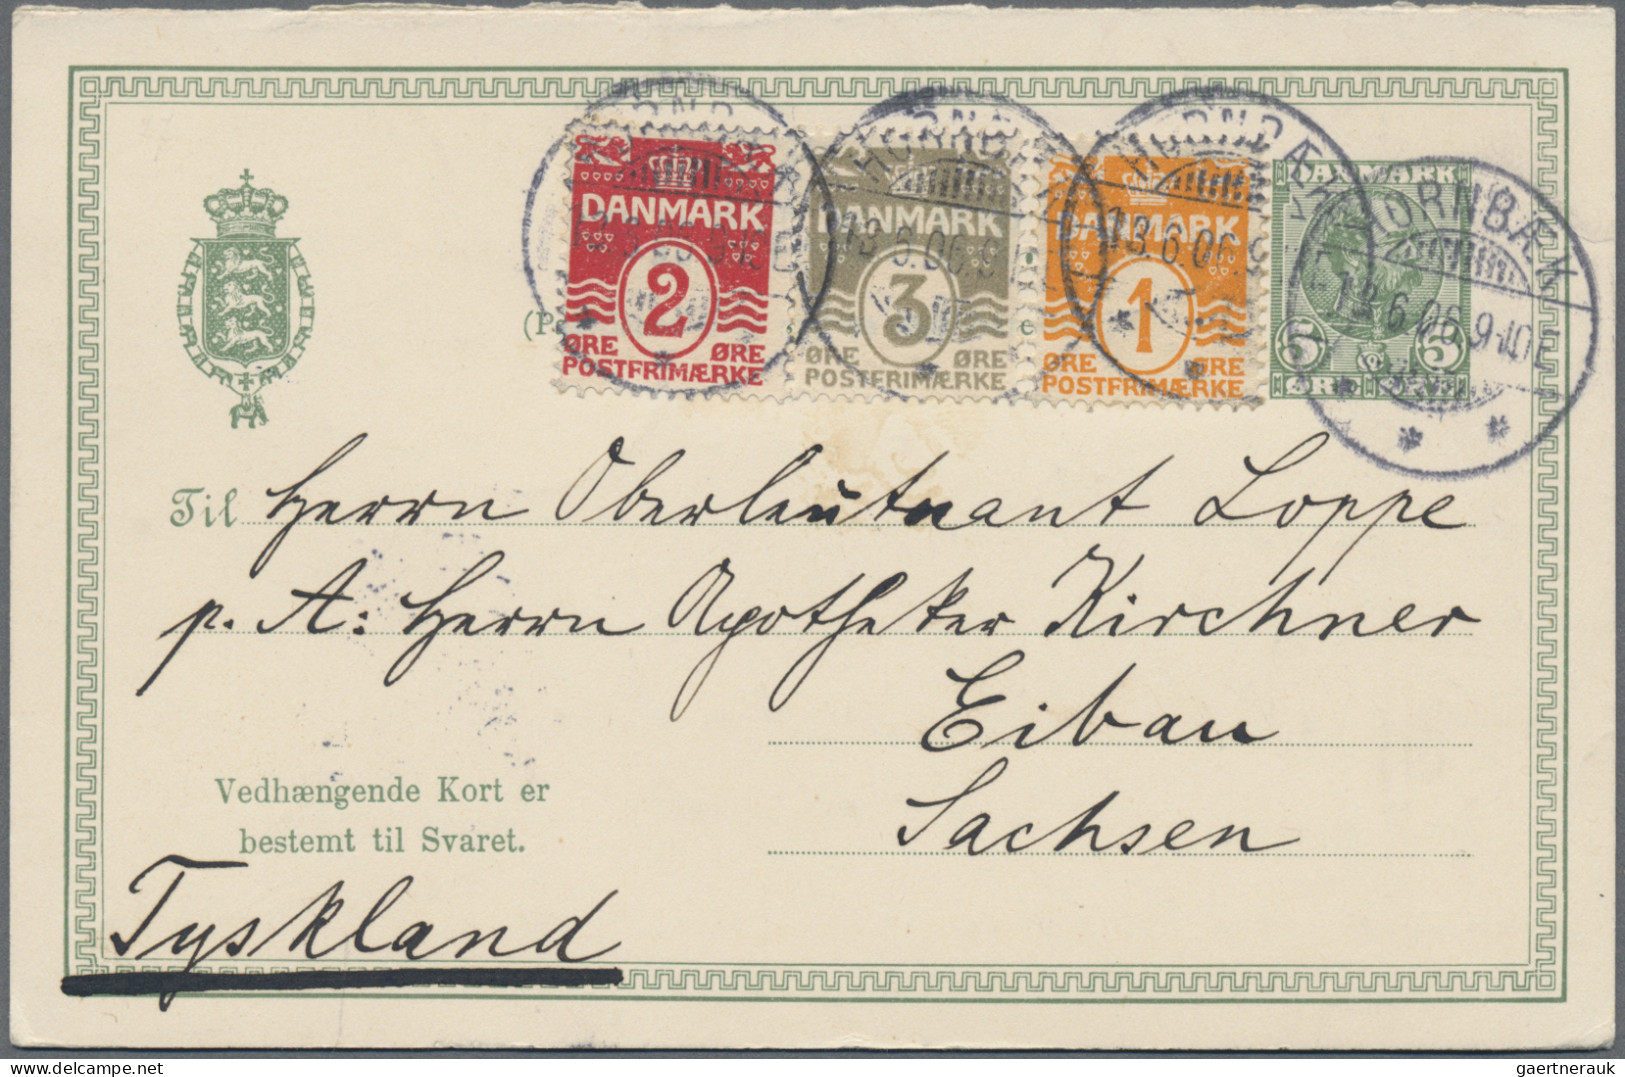 HORNBÆK
HORNBÆK
HORNBÆK
HORNBÆK
13.6.06.9-10E
DANMARK
2
ØRE ØRE
POSTFRIMÆRKE
DANMARK
3
ØRE ØRE
POSTFRIMÆRKE
DANMARK
1
ØRE ØRE
POSTFRIMÆRKE
DANMARK
5 5
ØRE
(P
Til Herrn Oberleutnant Loppe
p. A: Herrn Apotheker Kirchner
Eibau
Sachsen
Vedhængende Kort er
bestemt til Svaret.
Tyskland
delcampe.net
gaertnerauk